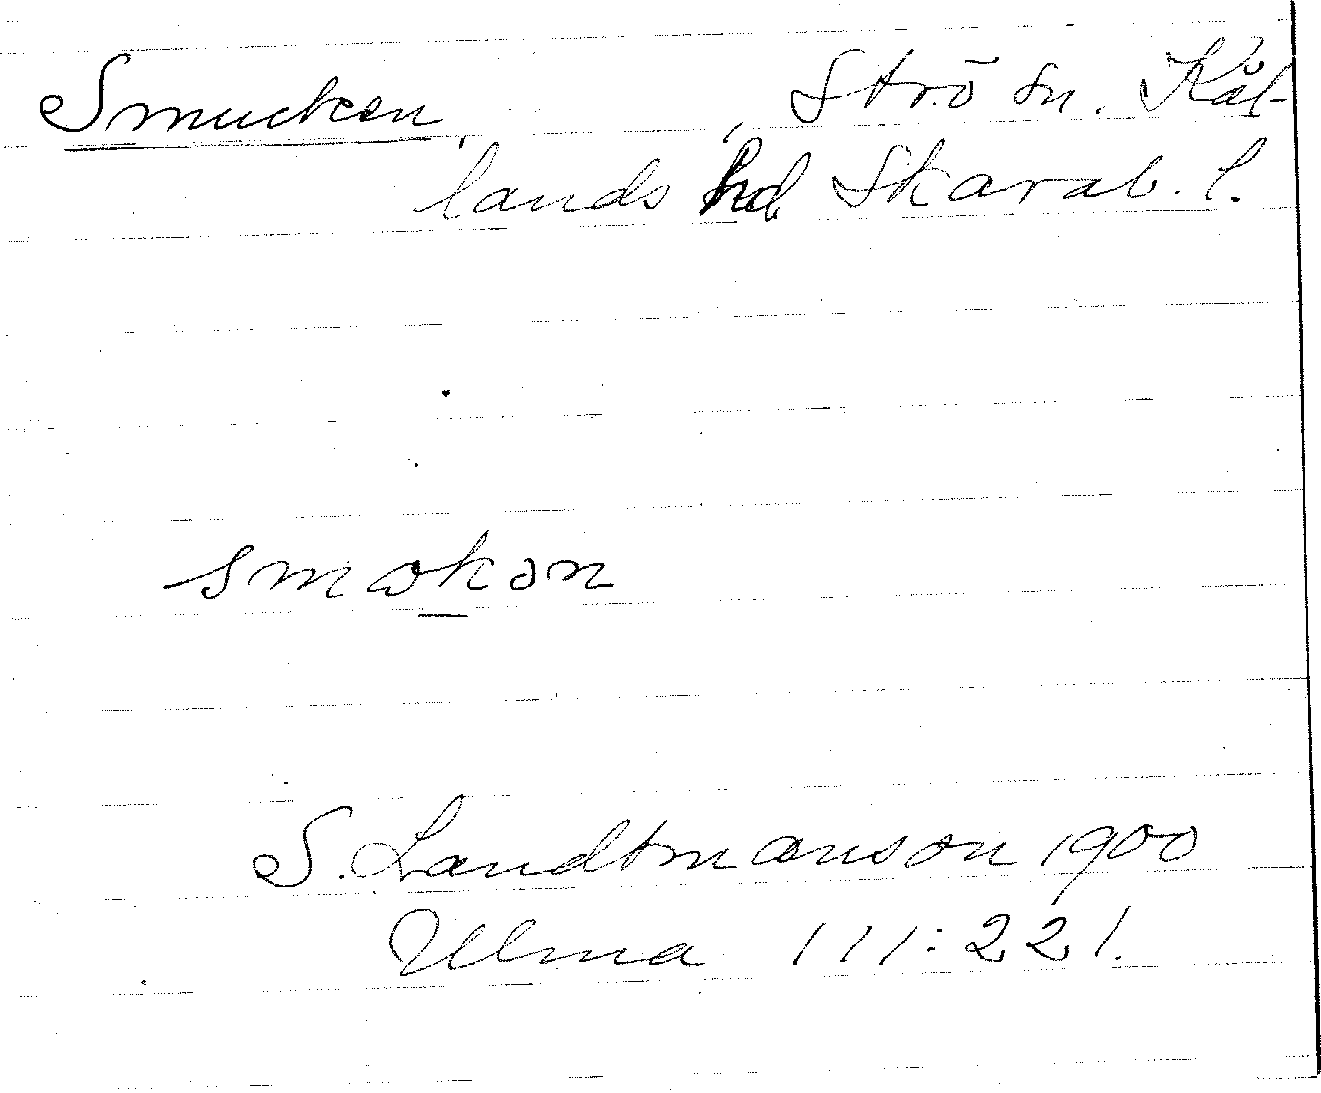 Smucken, Strö sn. Kål-
lands hd Skarab. l.
smɷkən
S. Landtmanson 1900
Ulma 111:221.